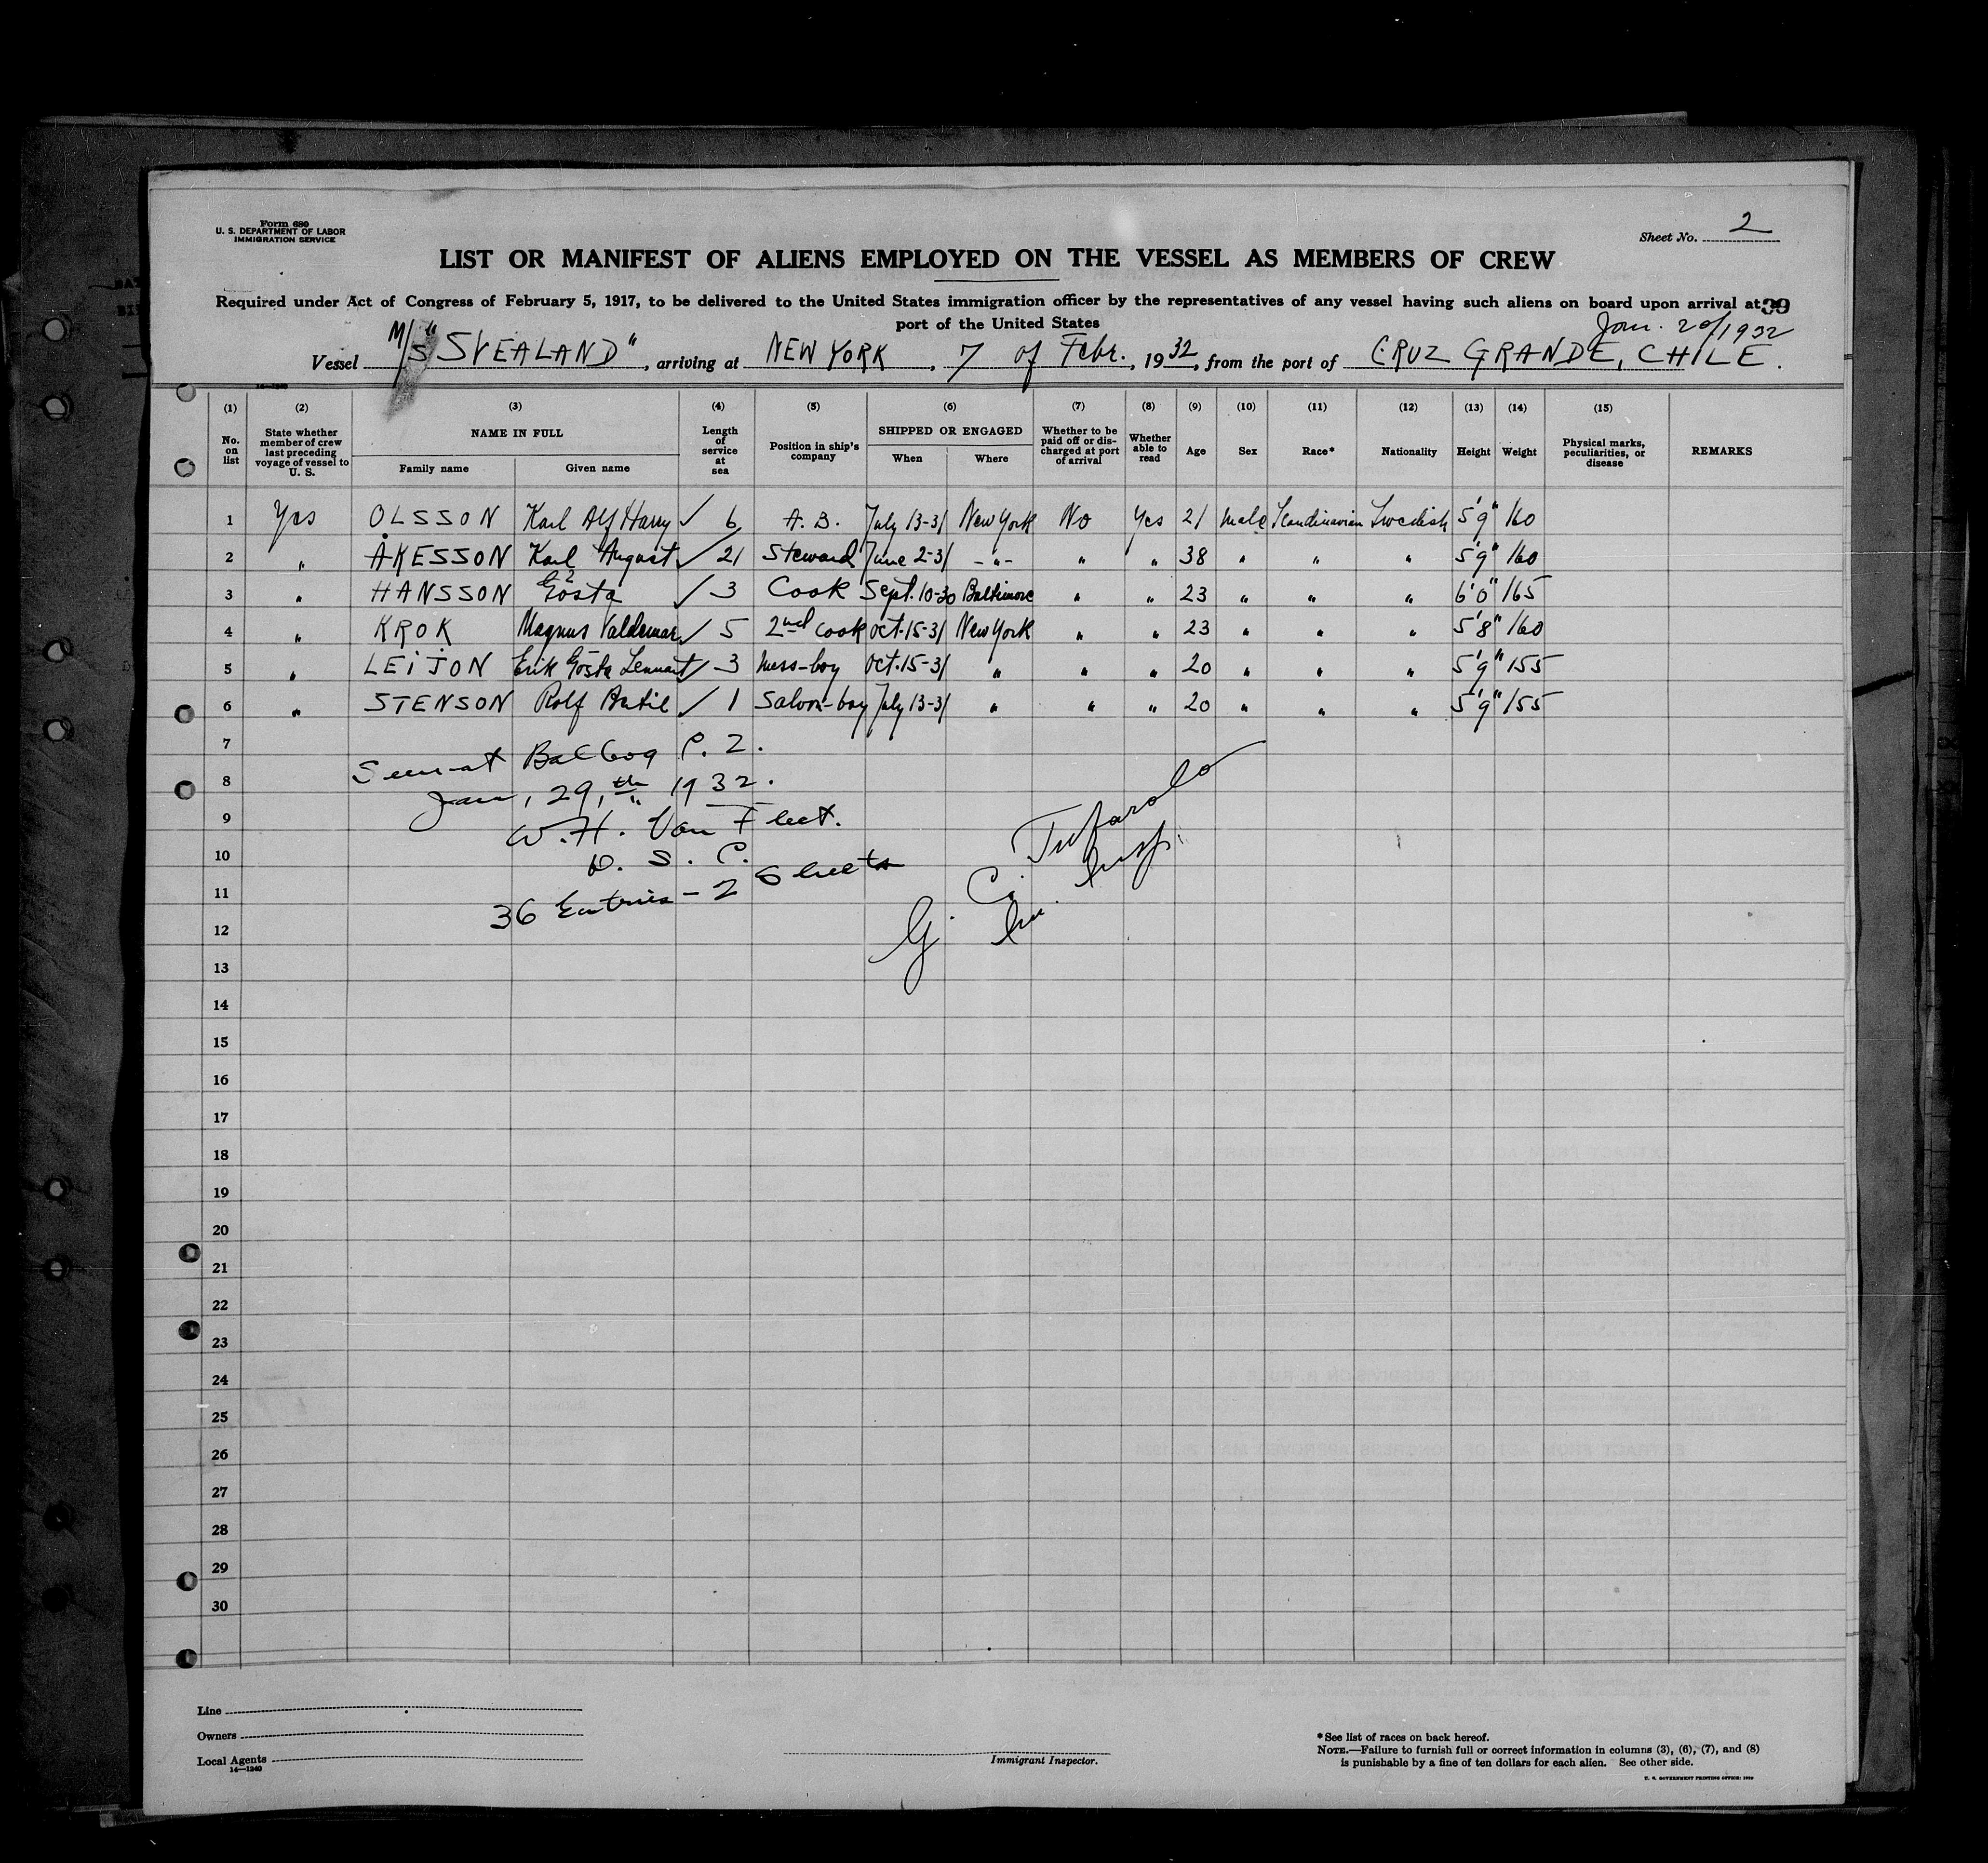 Form 680
U. S. DEPARTMENT OF LABOR
IMMIGRATION SERVICE
Sheet No. 2
LIST OR MANIFEST OF ALIENS EMPLOYED ON THE VESSEL AS MEMBERS OF CREW
Required under Act of Congress of February 5, 1917, to be delivered to the United States immigration officer by the representatives of any vessel having such aliens on board upon arrival at 39
port of the United States
Jan. 20/1932
Vessel M/S "SVEALAND", arriving at NEW YORK, 7 of Febr., 1932, from the port of CRUZ GRANDE, CHILE.
(1) (2) (3) (4) (5) (6) (7) (8) (9) (10) (11) (12) (13) (14) (15)
No. on list
State whether member of crew last preceding voyage of vessel to U. S.
NAME IN FULL
Family name Given name
Length of service at sea
Position in ship's company
SHIPPED OR ENGAGED
When Where
Whether to be paid off or discharged at port of arrival
Whether able to read
Age Sex Race* Nationality Height Weight
Physical marks, peculiarities, or disease
REMARKS
1 Yes OLSSON Karl Alf Harry ✓ 6 A. B. July 13-31 New York No Yes 21 Male Scandinavian Swedish 5'9" 160
2 " ÅKESSON Karl August ✓ 21 Steward June 2-31 -"- " " 38 " " " 5'9" 160
3 " HANSSON Gösta ✓ 3 Cook Sept. 10-30 Baltimore " " 23 " " " 6'0" 165
4 " KROK Magnus Valdemar ✓ 5 2nd Cook Oct. 15-31 New York " " 23 " " " 5'8" 160
5 " LEIJON Erik Gösta Lennart ✓ 3 Mess-boy Oct. 15-31 " " " 20 " " " 5'9" 155
6 " STENSON Rolf Bertil ✓ 1 Saloon-boy July 13-31 " " " 20 " " " 5'9" 155
7
Seen at Balboa C. Z.
8
Jan, 29, th 1932.
9
W. H. Van Fleet.
10
36 Entries - 2 Sheets
11
G. C. Tufarolo
Im. Insp.
12
13
14
15
16
17
18
19
20
21
22
23
24
25
26
27
28
29
30
Line
Owners
Local Agents
14—1240
Immigrant Inspector.
*See list of races on back hereof.
NOTE.—Failure to furnish full or correct information in columns (3), (6), (7), and (8)
is punishable by a fine of ten dollars for each alien. See other side.